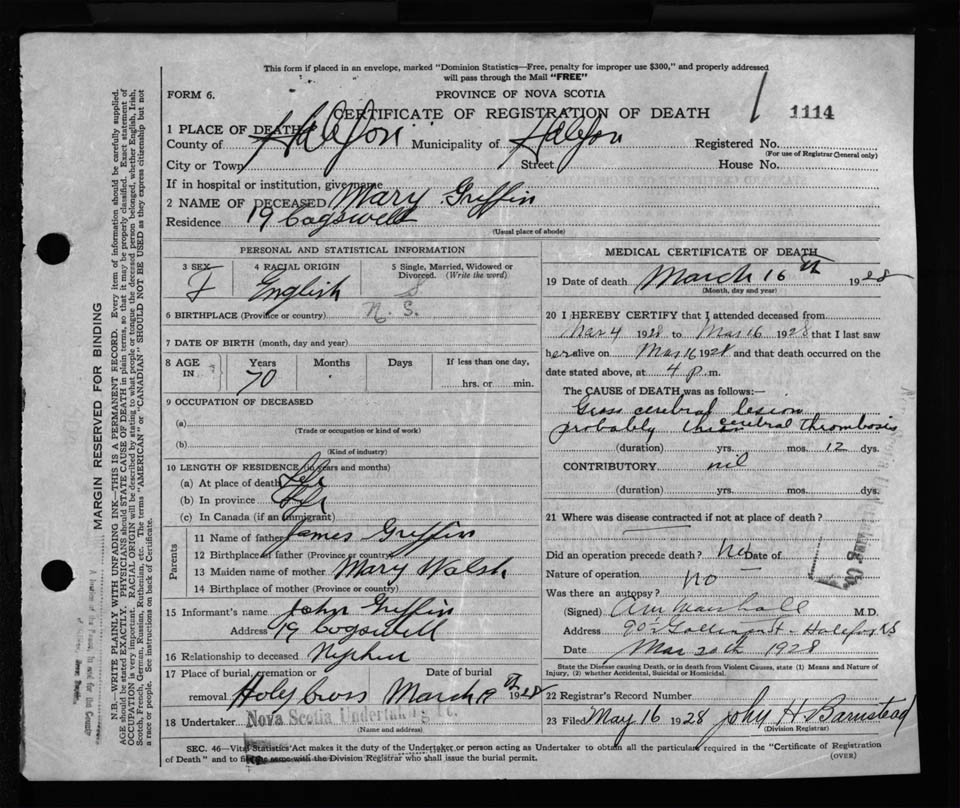 This form if placed in an envelope, marked "Dominion Statistics—Free, penalty for improper use $300," and properly addressed
will pass through the Mail "FREE"
FORM 6.
PROVINCE OF NOVA SCOTIA
CERTIFICATE OF REGISTRATION OF DEATH
1114
1 PLACE OF DEATH
County of Halifax Municipality of Halifax Registered No.
(For use of Registrar General only)
City or Town Street House No.
If in hospital or institution, give name
2 NAME OF DECEASED Mary Griffin
Residence 19 Cogswell
(Usual place of abode)
PERSONAL AND STATISTICAL INFORMATION
3 SEX 4 RACIAL ORIGIN 5 Single, Married, Widowed or
Divorced. (Write the word)
F English S
6 BIRTHPLACE (Province or country) N. S.
7 DATE OF BIRTH (month, day and year)
8 AGE Years Months Days If less than one day,
IN 70 hrs. or min.
9 OCCUPATION OF DECEASED
(a)
(Trade or occupation or kind of work)
(b)
(Kind of industry)
10 LENGTH OF RESIDENCE (in years and months)
(a) At place of death Life
(b) In province Life
(c) In Canada (if an immigrant)
Parents
11 Name of father James Griffin
12 Birthplace of father (Province or country)
13 Maiden name of mother Mary Walsh
14 Birthplace of mother (Province or country)
15 Informant's name John Griffin
Address 19 Cogswell
16 Relationship to deceased Nephew
17 Place of burial, cremation or Date of burial
removal Holy Cross March 19th 1928
18 Undertaker Nova Scotia Undertaking Co.
(Name and address)
MEDICAL CERTIFICATE OF DEATH
19 Date of death March 16th 1928
(Month, day and year)
20 I HEREBY CERTIFY that I attended deceased from
Mar 4 1928 to Mar 16 1928 that I last saw
her alive on Mar 16 1928 and that death occurred on the
date stated above, at 4 p. m.
The CAUSE of DEATH was as follows:—
Gross cerebral lesion
probably cerebral thrombosis
(duration) yrs. mos. 12 dys.
CONTRIBUTORY nil
(duration) yrs. mos. dys.
21 Where was disease contracted if not at place of death?
Did an operation precede death? no Date of
Nature of operation
Was there an autopsy? no
(Signed) Marshall M.D.
Address Halifax NS
Date Mar 20th 1928
State the Disease causing Death, or in death from Violent Causes, state (1) Means and Nature of
Injury, (2) whether Accidental, Suicidal or Homicidal.
22 Registrar's Record Number
23 Filed May 16 1928 John H Barnstead
(Division Registrar)
SEC. 46—Vital Statistics' Act makes it the duty of the Undertaker or person acting as Undertaker to obtain all the particulars required in the "Certificate of Registration
of Death" and to file the same with the Division Registrar who shall issue the burial permit.
(OVER)
MARGIN RESERVED FOR BINDING
N.B.—WRITE PLAINLY WITH UNFADING INK—THIS IS A PERMANENT RECORD. Every item of information should be carefully supplied.
AGE should be stated EXACTLY. PHYSICIANS should STATE CAUSE OF DEATH in plain terms, so that it may be properly classified. Exact statement of
OCCUPATION is very important. RACIAL ORIGIN will be described by stating to what people or tongue the deceased person belonged, whether English, Irish,
Scotch, French, German, Russian, Ruthenian, etc. The terms "AMERICAN" or "CANADIAN" SHOULD NOT BE USED as they express citizenship but not
a race or people. See instructions on back of Certificate.